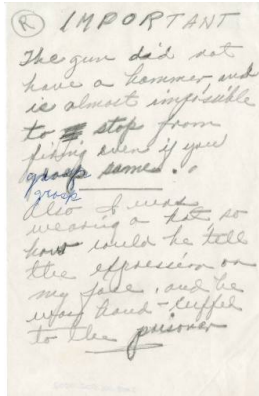 R IMPORTANT
The gun did not
have a hammer and
is almost impossible
to stop from
firing even if you
grasp same.
grasp
Also I was
wearing a hat so
how would he tell
the expression on
my face, and he
was hand-cuffed
to the prisoner